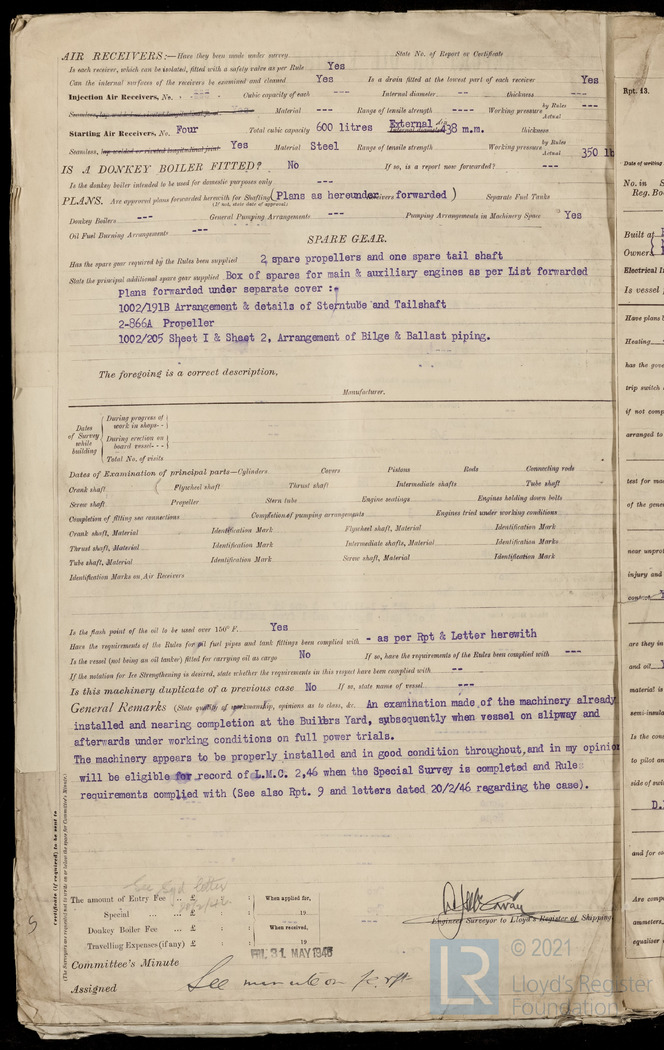 AIR RECEIVERS:—Have they been made under survey State No. of Report or Certificate
Is each receiver, which can be isolated, fitted with a safety valve as per Rule Yes
Can the internal surfaces of the receivers be examined and cleaned Yes Is a drain fitted at the lowest part of each receiver Yes
Injection Air Receivers, No. --- Cubic capacity of each --- Internal diameter --- thickness ---
Seamless, lap welded or riveted longitudinal joint Material --- Range of tensile strength ---- Working pressure by Rules ---- Actual
Starting Air Receivers, No. Four Total cubic capacity 600 litres External dia 438 m.m. thickness
Seamless, lap welded or riveted longitudinal joint Yes Material Steel Range of tensile strength Working pressure by Rules Actual 350 lb
IS A DONKEY BOILER FITTED? No If so, is a report now forwarded? ---
Is the donkey boiler intended to be used for domestic purposes only ---
PLANS. Are approved plans forwarded herewith for Shafting (Plans as hereunder forwarded) Receivers Separate Fuel Tanks
(If not, state date of approval)
Donkey Boilers --- General Pumping Arrangements --- Pumping Arrangements in Machinery Space Yes
Oil Fuel Burning Arrangements ---
SPARE GEAR.
Has the spare gear required by the Rules been supplied 2 spare propellers and one spare tail shaft
State the principal additional spare gear supplied Box of spares for main & auxiliary engines as per List forwarded
Plans forwarded under separate cover :-
1002/191B Arrangement & details of Sterntube and Tailshaft
2-866A Propeller
1002/205 Sheet I & Sheet 2, Arrangement of Bilge & Ballast piping.
The foregoing is a correct description,
Manufacturer.
Dates of Survey while building
During progress of work in shops--
During erection on board vessel---
Total No. of visits
Dates of Examination of principal parts—Cylinders Covers Pistons Rods Connecting rods
Crank shaft Flywheel shaft Thrust shaft Intermediate shafts Tube shaft
Screw shaft Propeller Stern tube Engine seatings Engines holding down bolts
Completion of fitting sea connections Completion of pumping arrangements Engines tried under working conditions
Crank shaft, Material Identification Mark Flywheel shaft, Material Identification Mark
Thrust shaft, Material Identification Mark Intermediate shafts, Material Identification Marks
Tube shaft, Material Identification Mark Screw shaft, Material Identification Mark
Identification Marks on Air Receivers
Is the flash point of the oil to be used over 150° F. Yes
Have the requirements of the Rules for oil fuel pipes and tank fittings been complied with - as per Rpt & Letter herewith
Is the vessel (not being an oil tanker) fitted for carrying oil as cargo No If so, have the requirements of the Rules been complied with ---
If the notation for Ice Strengthening is desired, state whether the requirements in this respect have been complied with --
Is this machinery duplicate of a previous case No If so, state name of vessel ---
General Remarks (State quality of workmanship, opinions as to class, &c. An examination made of the machinery already
installed and nearing completion at the Builders Yard, subsequently when vessel on slipway and
afterwards under working conditions on full power trials.
The machinery appears to be properly installed and in good condition throughout, and in my opinion
will be eligible for record of L.M.C. 2,46 when the Special Survey is completed and Rule
requirements complied with (See also Rpt. 9 and letters dated 20/2/46 regarding the case).
Certificate (if required) to be sent to
(The Surveyors are requested not to write on or below the space for Committee's Minute)
See letter
The amount of Entry Fee .. £ : : When applied for,
Special ... ... £ : : 19
Donkey Boiler Fee ... £ : : When received,
Travelling Expenses (if any) £ : : 19
Engineer Surveyor to Lloyd's Register of Shipping
FRI. 31 MAY 1946
Committee's Minute
Assigned See minute on
Rpt. 13.
Date of writing
No. in
Reg. Bo
Built at
Owners
Electrical I
Is vessel
Have plans
Heating
has the gove
trip switch
if not comp
arranged to
test for ma
of the gener
near unprot
injury and
contact
are they in
and oil
material is
semi-insula
Is the cons
to pilot an
side of swi
D.
and for co
Are comp
ammeters,
equaliser
© 2021
LR Lloyd's Register
Foundation